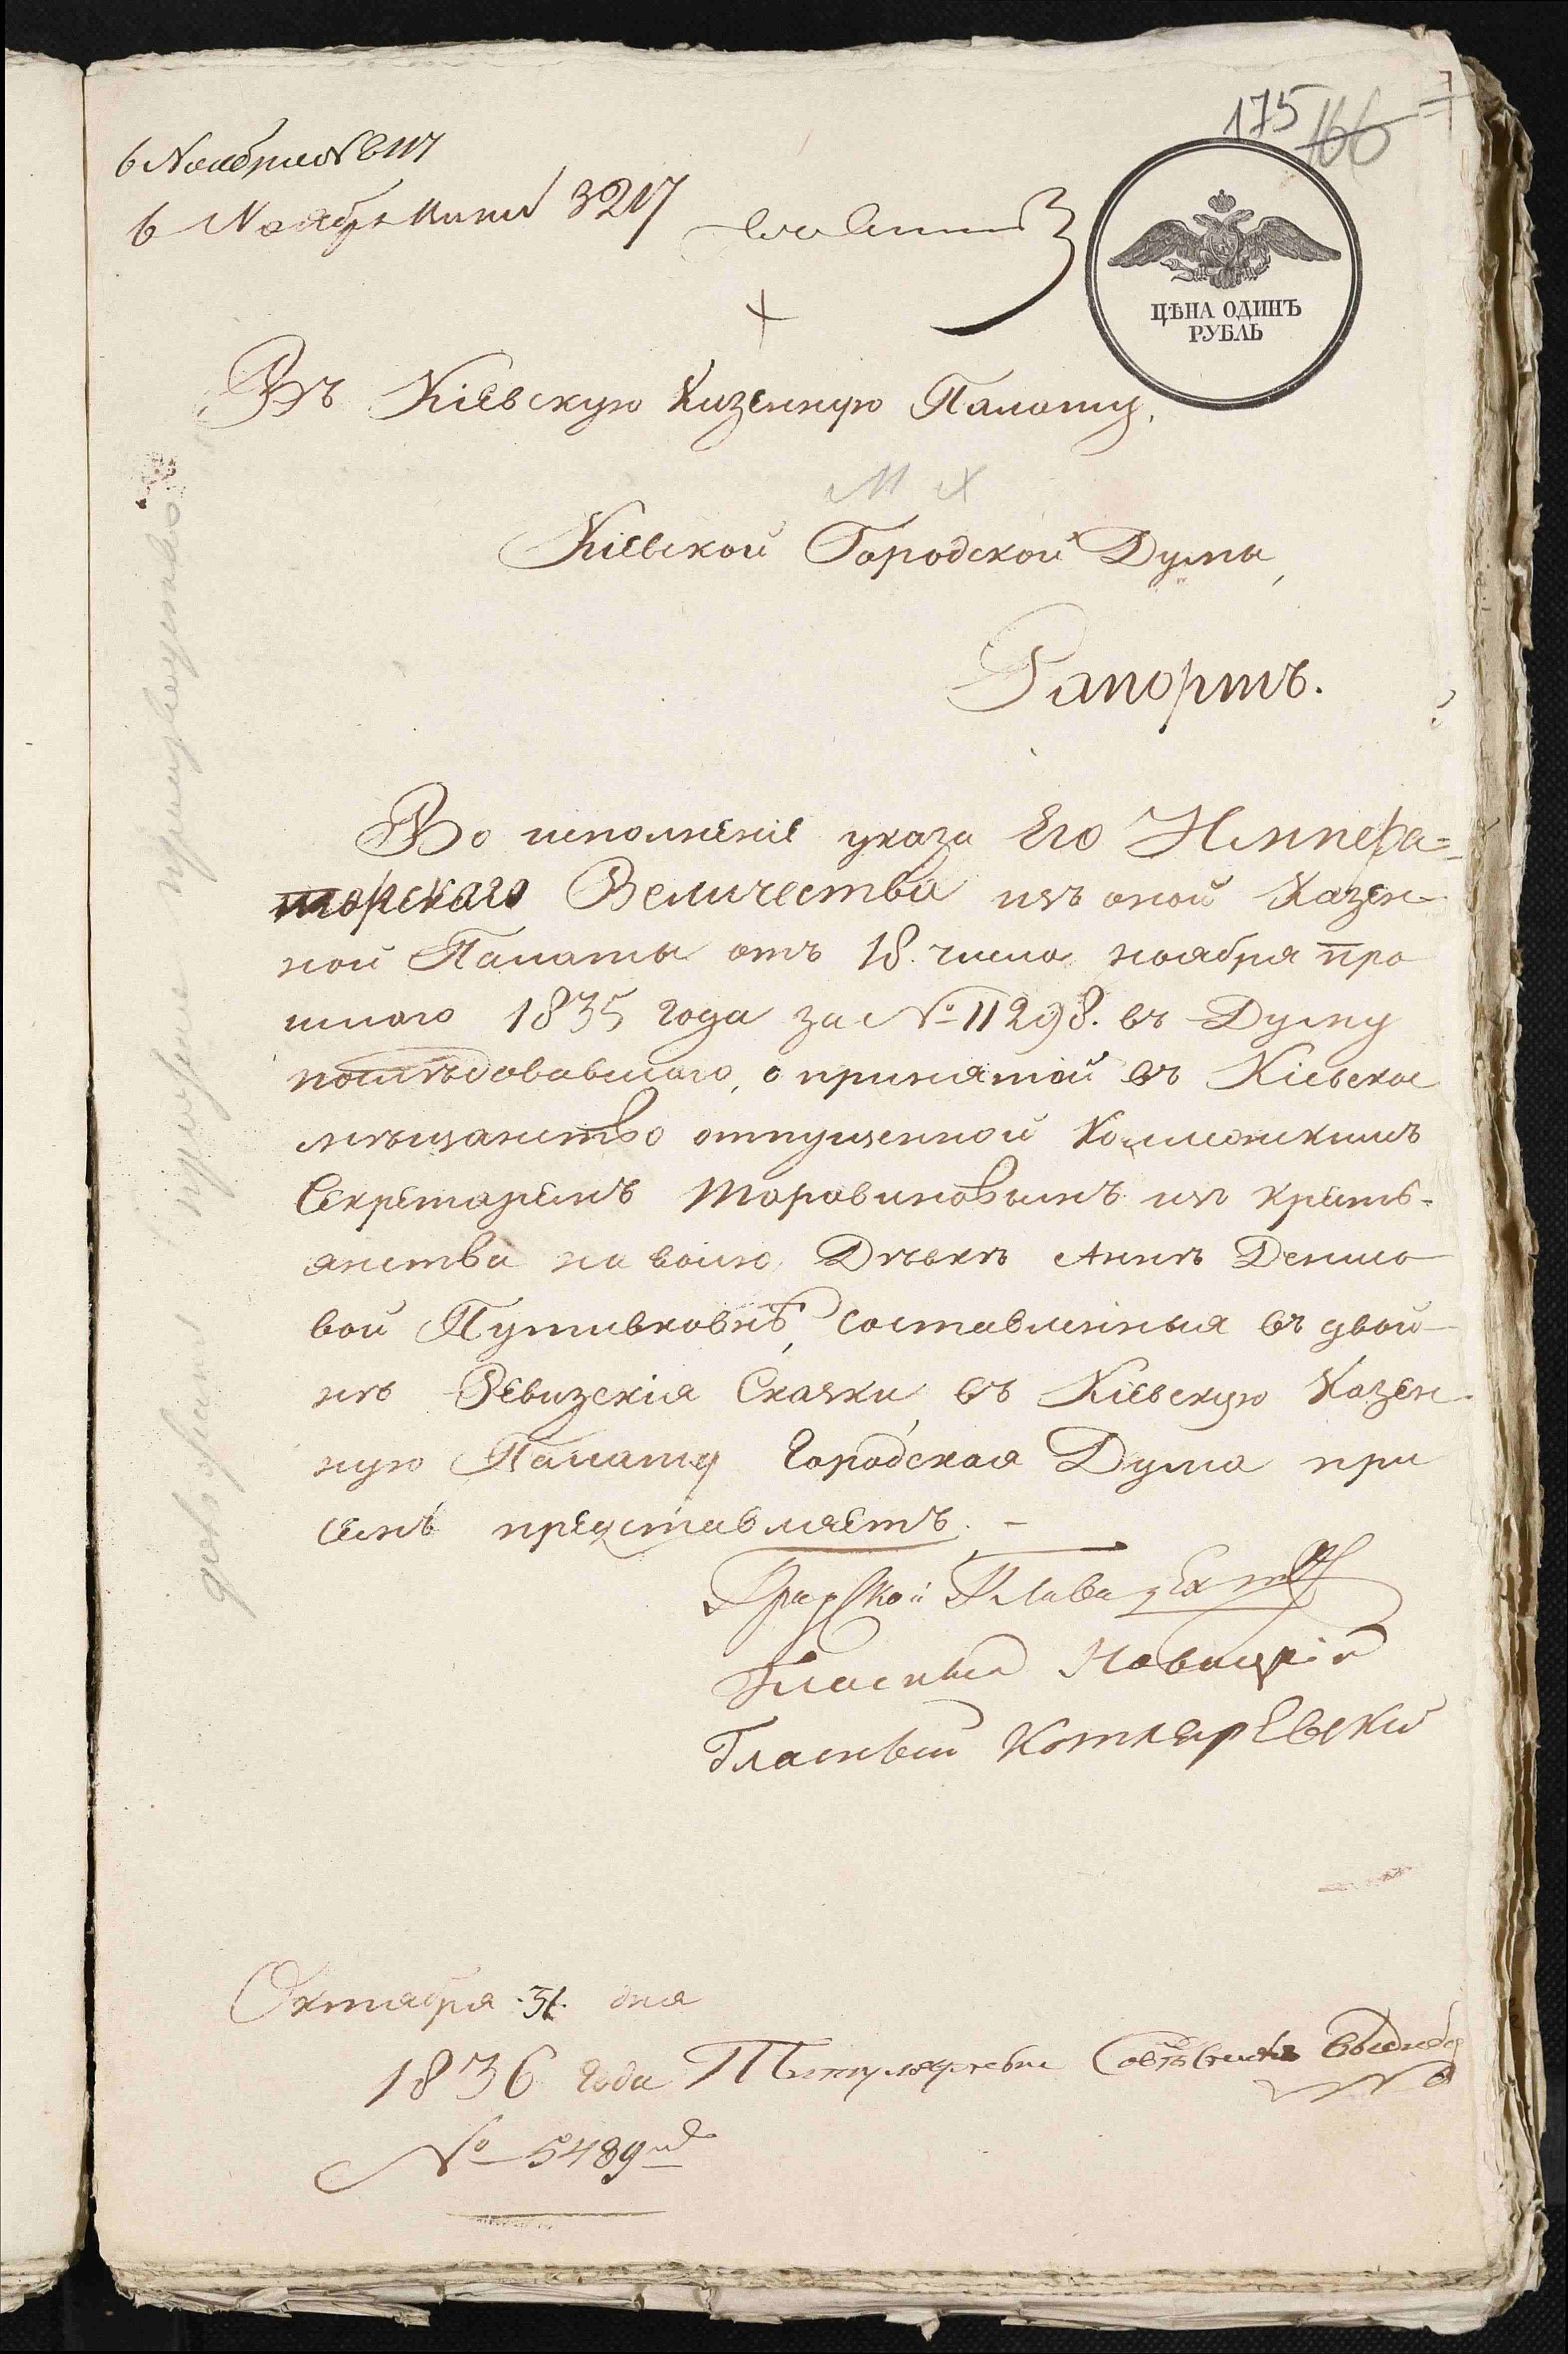 175 166
6 Ноября
6 Ноября 3217
ЦѢНА ОДИНЪ
РУБЛЬ
Въ Кіевскую Казенную Палату,
Кіевской Городской Думы,
Рапортъ.
Во исполненіе указа Его Импера=
торскаго Величества изъ оной Казен-
ной Палаты отъ 18. числа ноября про
шлого 1835 года за № 11298. въ Думу
послѣдовавшаго, о принятой въ Кіевское
мѣщанство отпущенной Коллежскимъ
Секретаремъ Торавиновымъ изъ кресть-
янства на волю Дѣвкѣ Аннѣ Денисо
вой Путивковнѣ, составленныя въ двой-
нѣ Ревизскія Сказки, въ Кіевскую Казен-
ную Палату Городская Дума при
семъ представляетъ. -
Градской Глава
Гласный Новицкій
Гласный Котляревскій
Октября 31. дня
1836 года Титулярный Совѣтникъ
№ 5489